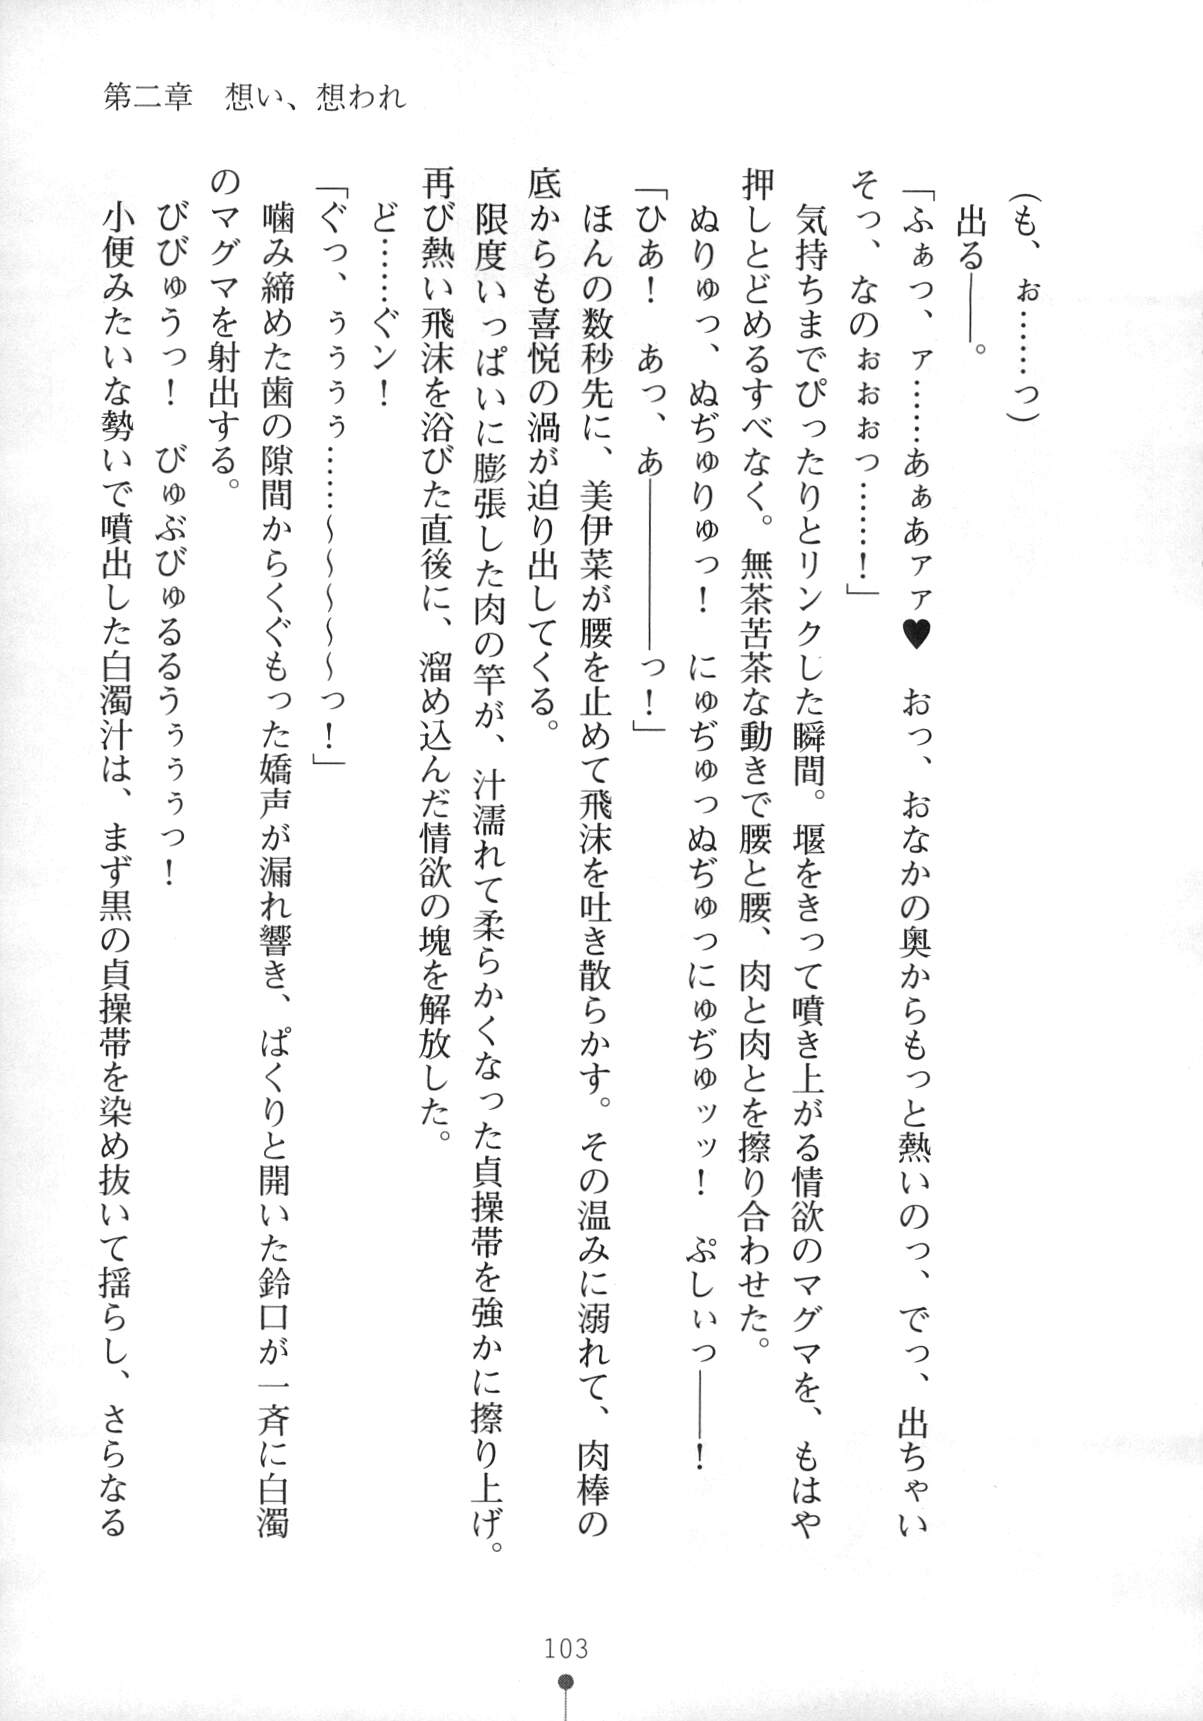 第二章　想い、想われ
(も、ぉ……っ)
出る――。
「ふぁっ、ァ……あぁあァァ♥　おっ、おなかの奥からもっと熱いのっ、でっ、出ちゃい
そっ、なのぉぉぉっ……！」
気持ちまでぴったりとリンクした瞬間。堰をきって噴き上がる情欲のマグマを、もはや
押しとどめるすべなく。無茶苦茶な動きで腰と腰、肉と肉とを擦り合わせた。
ぬりゅっ、ぬぢゅりゅっ！　にゅぢゅっぬぢゅっにゅぢゅッッ！　ぷしぃっ――！
「ひあ！　あっ、あ――――っ！」
ほんの数秒先に、美伊菜が腰を止めて飛沫を吐き散らかす。その温みに溺れて、肉棒の
底からも喜悦の渦が迫り出してくる。
限度いっぱいに膨張した肉の竿が、汁濡れて柔らかくなった貞操帯を強かに擦り上げ。
再び熱い飛沫を浴びた直後に、溜め込んだ情欲の塊を解放した。
ど……ぐン！
「ぐっ、ぅぅぅ……～～～～～っ！」
噛み締めた歯の隙間からくぐもった嬌声が漏れ響き、ぱくりと開いた鈴口が一斉に白濁
のマグマを射出する。
びびゅうっ！　びゅぶびゅるるうぅぅぅっ！
小便みたいな勢いで噴出した白濁汁は、まず黒の貞操帯を染め抜いて揺らし、さらなる
103